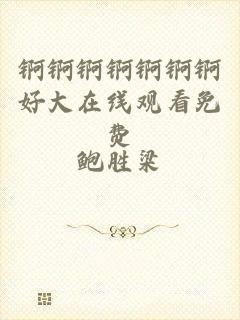 锕锕锕锕锕锕锕
好大在线观看免
费
鲍胜梁